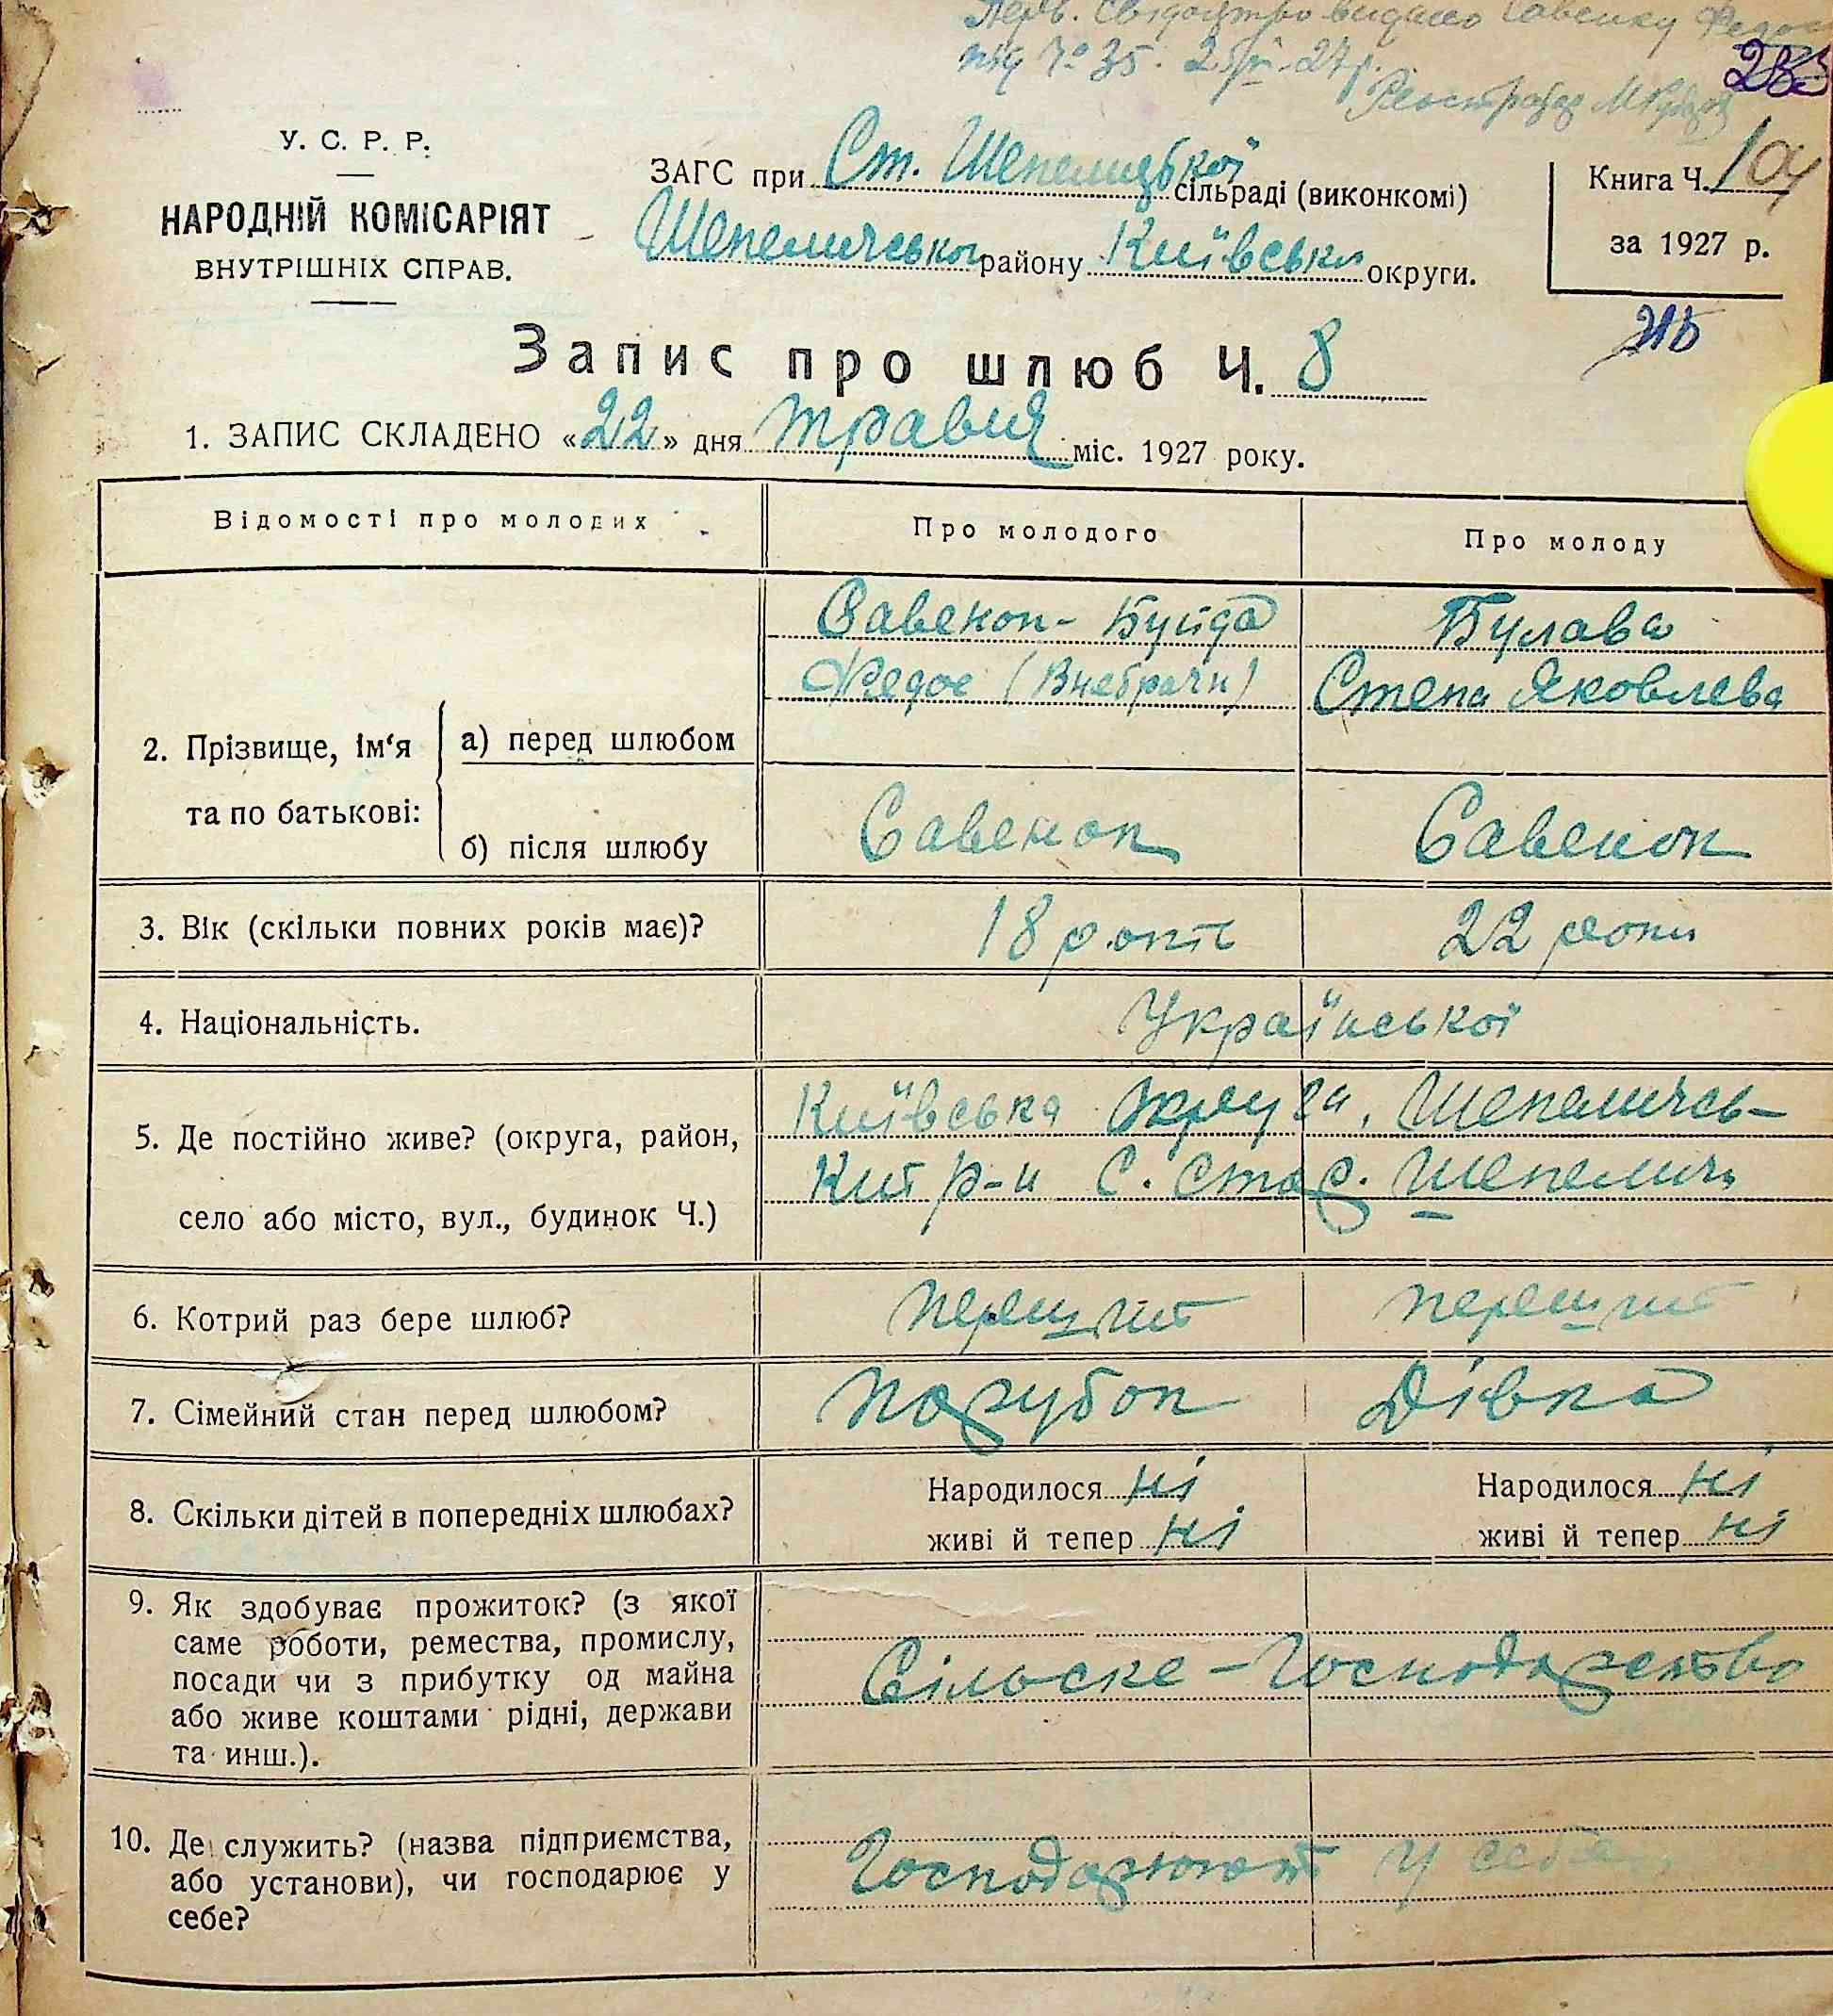 Перв. Свідоцтво видано Савенку Федос
під № 35. 27 р.
Реєстратор
У. С. Р. Р.
НАРОДНІЙ КОМІСАРІЯТ
ВНУТРІШНІХ СПРАВ.
ЗАГС при Ст. Шепелицької сільраді (виконкомі)
Шепеличської району Київської округи.
Книга Ч. 104
за 1927 р.
Запис про шлюб Ч. 8
1. ЗАПИС СКЛАДЕНО «22» дня травня міс. 1927 року.
Відомості про молодих Про молодого Про молоду
Савенок-Буйда Булава
Федос (Внебрачн) Степа Яковлева
2. Прізвище, ім‘я а) перед шлюбом
та по батькові:
б) після шлюбу Савенок Савенок
3. Вік (скільки повних років має)? 18 років 22 роки
4. Національність. Української
5. Де постійно живе? (округа, район, Київська округа, Шепеличсь-
село або місто, вул., будинок Ч.) кий р-н С. Стар. Шепеличі
6. Котрий раз бере шлюб? перший перший
7. Сімейний стан перед шлюбом? парубок Дівка
8. Скільки дітей в попередніх шлюбах? Народилося ні Народилося ні
живі й тепер ні живі й тепер ні
9. Як здобуває прожиток? (з якої
саме роботи, ремества, промислу,
посади чи з прибутку од майна Сільске-Господарство
або живе коштами рідні, держави
та инш.).
10. Де служить? (назва підприємства,
або установи), чи господарює у Господарюють у себе
себе?